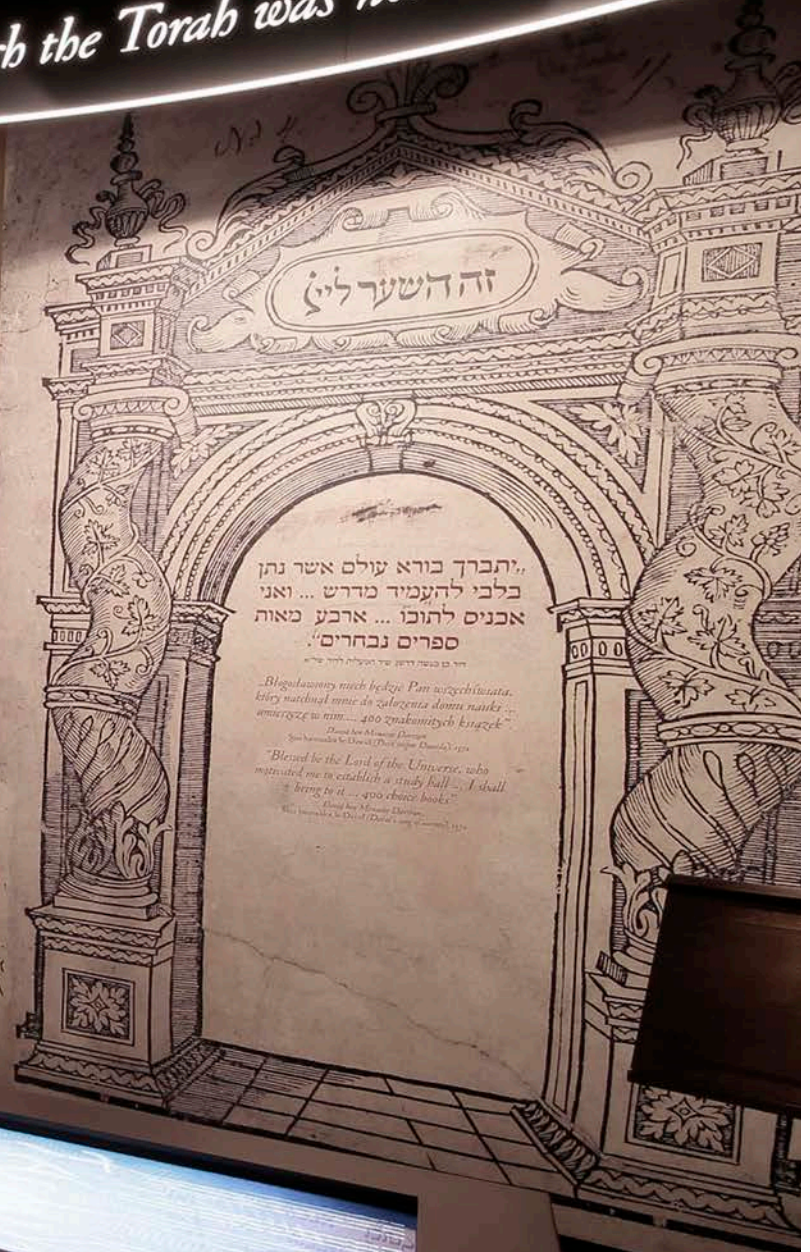 the Torah was
זה השער ליי
„יתברך בורא עולם אשר נתן
בלבי להעמיד מדרש ... ואני
אכניס לתוכו ... ארבע מאות
ספרים נבחרים“.
„Błogosławiony niech będzie Pan wszechświata,
który natchnął mnie do założenia domu nauki ...,
umieszczę w nim ... 400 znakomitych książek”.
"Blessed be the Lord of the Universe, who
motivated me to establish a study hall ..., I shall
bring to it ... 400 choice books"